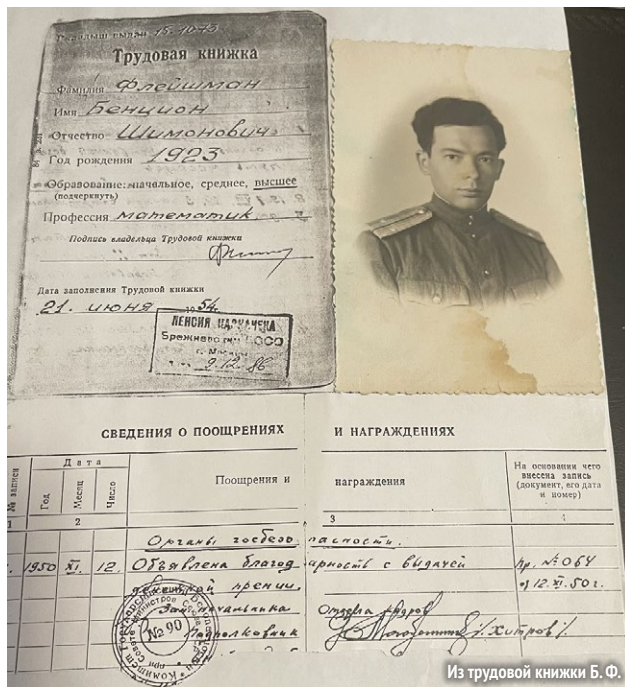 Вкладыш выдан 15.10.73
Трудовая книжка
Фамилия Флейшман
Имя Бенцион
Отчество Шимонович
Год рождения 1923
Образование: начальное, среднее, высшее
(подчеркнуть)
Профессия математик
Подпись владельца Трудовой книжки
Дата заполнения Трудовой книжки
21. июня 1954.
ПЕНСИЯ НАЗНАЧЕНА
г. Москвы
9.12.86
СВЕДЕНИЯ О ПООЩРЕНИЯХ И НАГРАЖДЕНИЯХ
№ записи
Дата
Год
Месяц
Число
Поощрения и награждения
На основании чего внесена запись (документ, его дата и номер)
1 2 3 4
Органы госбезопасности.
1950 XI. 12. Объявлена благодарность с выдачей пр. № 064
денежной премии. от 12.XI.50г.
Зам. начальника отдела кадров
Подполковник /Хитров/
№ 90
Из трудовой книжки Б. Ф.